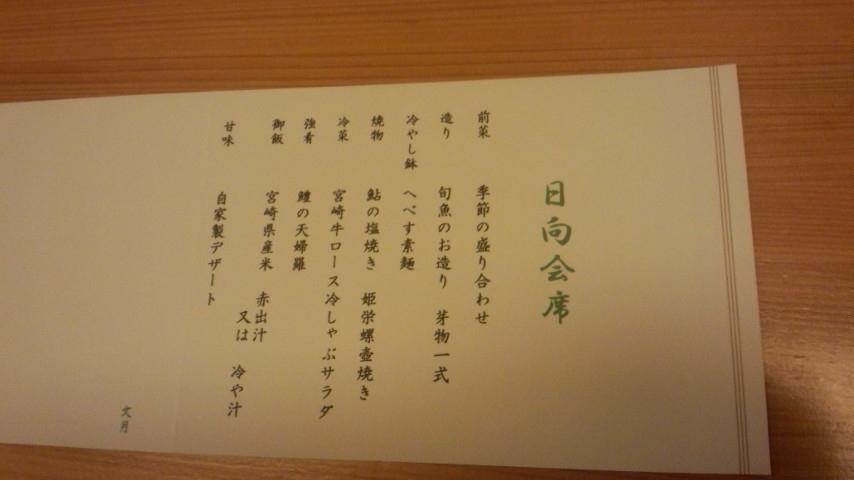 日向会席
前菜 季節の盛り合わせ
造り 旬魚のお造り 芽物一式
冷やし鉢 へべす素麺
焼物 鮎の塩焼き 姫栄螺壺焼き
冷菜 宮崎牛ロース冷しゃぶサラダ
強肴 鱧の天婦羅
御飯 宮崎県産米 赤出汁
又は 冷や汁
甘味 自家製デザート
文月